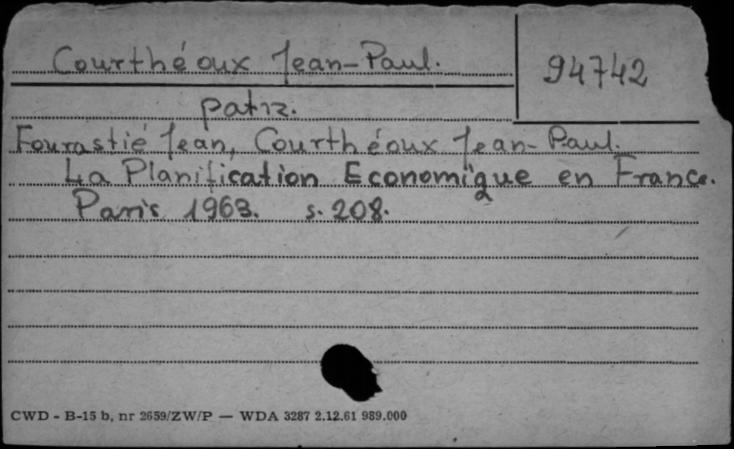 Courthéoux Jean-Paul.
94742
patrz.
Fourastié Jean, Courthéoux Jean-Paul.
La Planification Economique en France.
Paris 1963. s. 208.
CWD - B-15 b, nr 2659/ZW/P — WDA 3287 2.12.61 989.000